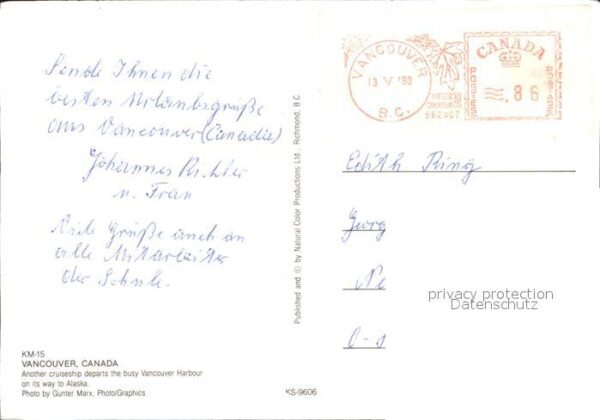 Sende Ihnen die
besten Urlaubsgrüße
aus Vancouver (Canada)
Johannes Richter
u. Frau
Viele Grüße auch an
alle Mitarbeiter
der Schule.
KM-15
VANCOUVER, CANADA
Another cruiseship departs the busy Vancouver Harbour
on its way to Alaska.
Photo by Gunter Marx, Photo/Graphics
Published and © by Natural Color Productions Ltd., Richmond, B.C.
KS-9606
VANCOUVER
13 V '93
B.C.
562407
CANADA
.86
Edith Ring
Georg
Ne
O-a
privacy protection